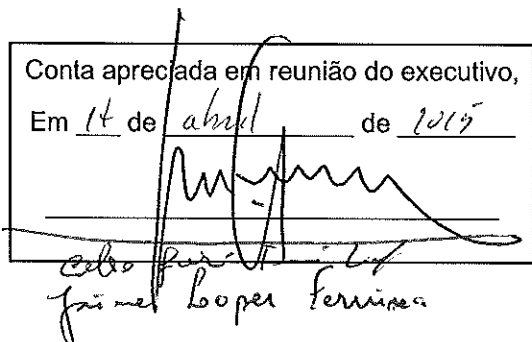 Conta apreciada em reunião do executivo,
Em 14 de abril de 2015
Jaime Lopes Ferreira